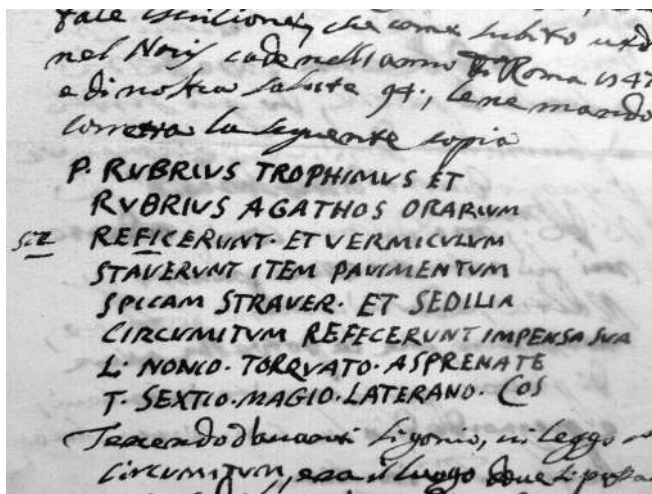 tale iscrizione, che come subito
nel Noris cade nell'anno di Roma 847
e di nostra salute 94; le ne mando
corretta la seguente copia
P. RVBRIVS TROPHIMVS ET
RVBRIVS AGATHOS ORARIVM
sic REFICERVNT· ET VERMICVLVM
STAVERVNT ITEM PAVIMENTVM
SPICAM STRAVER· ET SEDILIA
CIRCVMITVM REFECERVNT IMPENSA SVA
L· NONIO· TORQVATO· ASPRENATE
T· SEXTIO· MAGIO· LATERANO· COS
Ligorio, vi leggo
CIRCVMITVM, era il luogo dove si